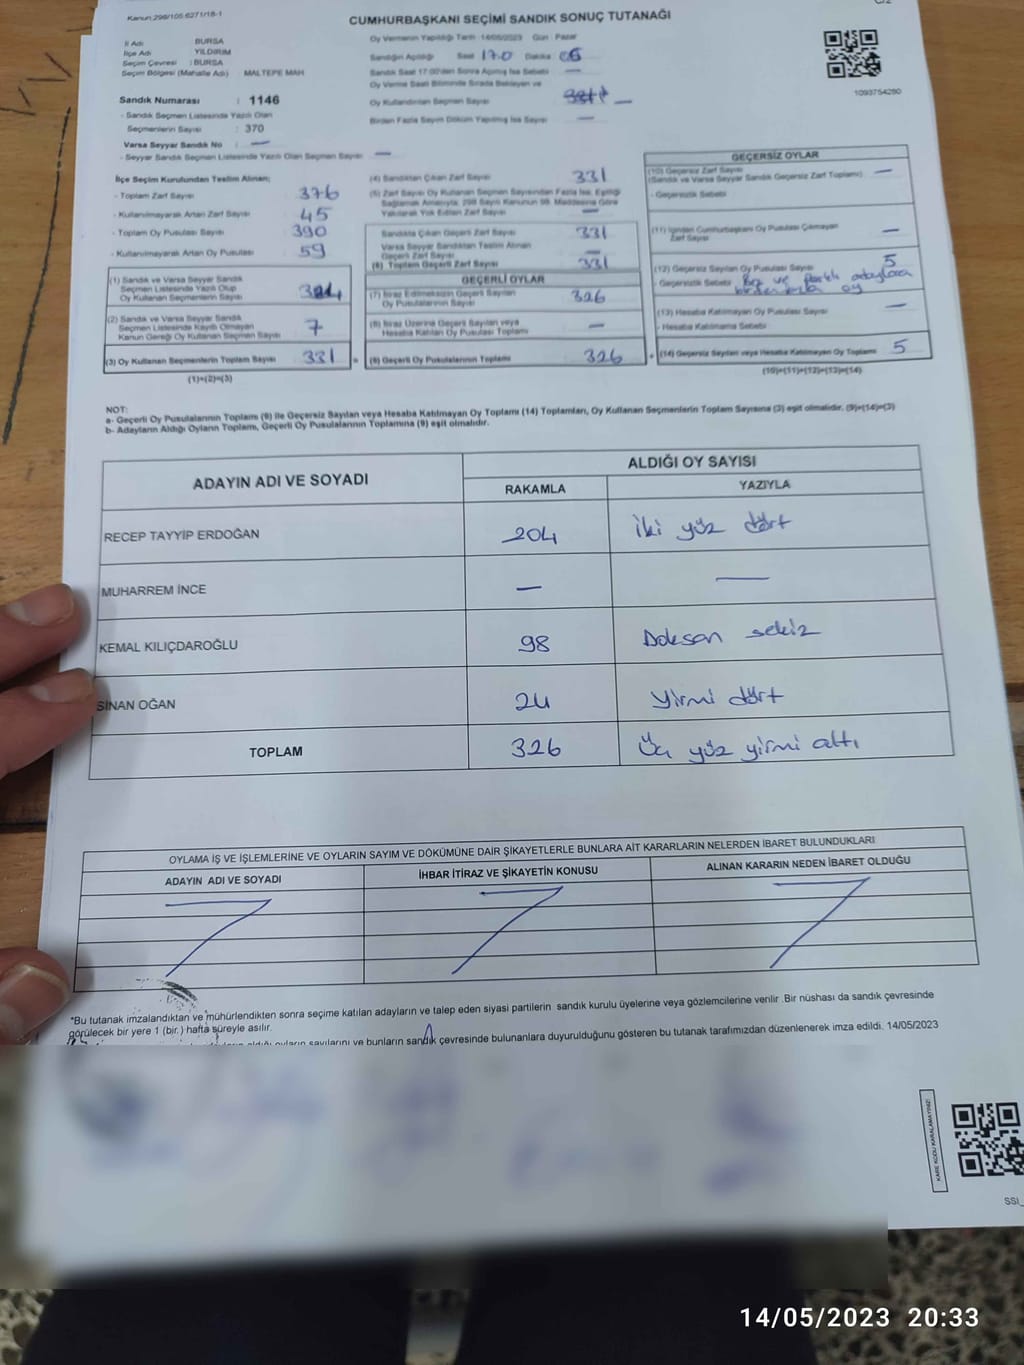 Kanun:298/105.6271/18-1
CUMHURBAŞKANI SEÇİMİ SANDIK SONUÇ TUTANAĞI
İl Adı BURSA
İlçe Adı YILDIRIM
Seçim Çevresi : BURSA
Seçim Bölgesi (Mahalle Adı) MALTEPE MAH
Sandık Numarası : 1146
- Sandık Seçmen Listesinde Yazılı Olan
Seçmenlerin Sayısı : 370
Varsa Seyyar Sandık No : —
- Seyyar Sandık Seçmen Listesinde Yazılı Olan Seçmen Sayısı —
Oy Vermenin Yapıldığı Tarih : 14/05/2023 Gün : Pazar
Sandığın Açıldığı Saat 17.0 Dakika 05
Sandık Saat 17:00'den Sonra Açılmış İse Sebebi —
Oy Verme Saati Bitiminde Sırada Bekleyen ve
Oy Kullandırılan Seçmen Sayısı —
Birden Fazla Sayım Döküm Yapılmış İse Sayısı —
1093754280
İlçe Seçim Kurulundan Teslim Alınan;
- Toplam Zarf Sayısı 376
- Kullanılmayarak Artan Zarf Sayısı 45
- Toplam Oy Pusulası Sayısı 390
- Kullanılmayarak Artan Oy Pusulası 59
(1) Sandık ve Varsa Seyyar Sandık
Seçmen Listesinde Yazılı Olup
Oy Kullanan Seçmenlerin Sayısı 324
(2) Sandık ve Varsa Seyyar Sandık
Seçmen Listesinde Kayıtlı Olmayan
Kanun Gereği Oy Kullanan Seçmen Sayısı 7
(3) Oy Kullanan Seçmenlerin Toplam Sayısı 331
(1)+(2)=(3)
(4) Sandıktan Çıkan Zarf Sayısı 331
(5) Zarf Sayısı Oy Kullanan Seçmen Sayısından Fazla İse, Eşitliği
Sağlamak Amacıyla; 298 Sayılı Kanunun 98. Maddesine Göre
Yakılarak Yok Edilen Zarf Sayısı —
Sandıkta Çıkan Geçerli Zarf Sayısı 331
Varsa Seyyar Sandıktan Teslim Alınan
Geçerli Zarf Sayısı —
(6) Toplam Geçerli Zarf Sayısı 331
GEÇERLİ OYLAR
(7) İtiraz Edilmeksizin Geçerli Sayılan
Oy Pusulalarının Sayısı 326
(8) İtiraz Üzerine Geçerli Sayılan veya
Hesaba Katılan Oy Pusulası Toplamı —
= (9) Geçerli Oy Pusulalarının Toplamı 326
GEÇERSİZ OYLAR
(10) Geçersiz Zarf Sayısı
(Sandık ve Varsa Seyyar Sandık Geçersiz Zarf Toplamı) —
- Geçersizlik Sebebi
(11) İçinden Cumhurbaşkanı Oy Pusulası Çıkmayan
Zarf Sayısı —
(12) Geçersiz Sayılan Oy Pusulası Sayısı 5
- Geçersizlik Sebebi Boş ve farklı adaylara
birden fazla oy
(13) Hesaba Katılmayan Oy Pusulası Sayısı —
- Hesaba Katılmama Sebebi
+ (14) Geçersiz Sayılan veya Hesaba Katılmayan Oy Toplamı 5
(10)+(11)+(12)+(13)=(14)
NOT:
a- Geçerli Oy Pusulalarının Toplamı (9) ile Geçersiz Sayılan veya Hesaba Katılmayan Oy Toplamı (14) Toplamları, Oy Kullanan Seçmenlerin Toplam Sayısına (3) eşit olmalıdır. (9)+(14)=(3)
b- Adayların Aldığı Oyların Toplamı, Geçerli Oy Pusulalarının Toplamına (9) eşit olmalıdır.
ADAYIN ADI VE SOYADI
ALDIĞI OY SAYISI
RAKAMLA YAZIYLA
RECEP TAYYİP ERDOĞAN 204 İki yüz dört
MUHARREM İNCE — —
KEMAL KILIÇDAROĞLU 98 Doksan sekiz
SİNAN OĞAN 24 Yirmi dört
TOPLAM 326 Üç yüz yirmi altı
OYLAMA İŞ VE İŞLEMLERİNE VE OYLARIN SAYIM VE DÖKÜMÜNE DAİR ŞİKAYETLERLE BUNLARA AİT KARARLARIN NELERDEN İBARET BULUNDUKLARI
ADAYIN ADI VE SOYADI İHBAR İTİRAZ VE ŞİKAYETİN KONUSU ALINAN KARARIN NEDEN İBARET OLDUĞU
*Bu tutanak imzalandıktan ve mühürlendikten sonra seçime katılan adayların ve talep eden siyasi partilerin sandık kurulu üyelerine veya gözlemcilerine verilir .Bir nüshası da sandık çevresinde
görülecek bir yere 1 (bir.) hafta süreyle asılır.
oyların sayılarını ve bunların sandık çevresinde bulunanlara duyurulduğunu gösteren bu tutanak tarafımızdan düzenlenerek imza edildi. 14/05/2023
KARE KODU KARALAMAYINIZ!
SSI_
14/05/2023 20:33